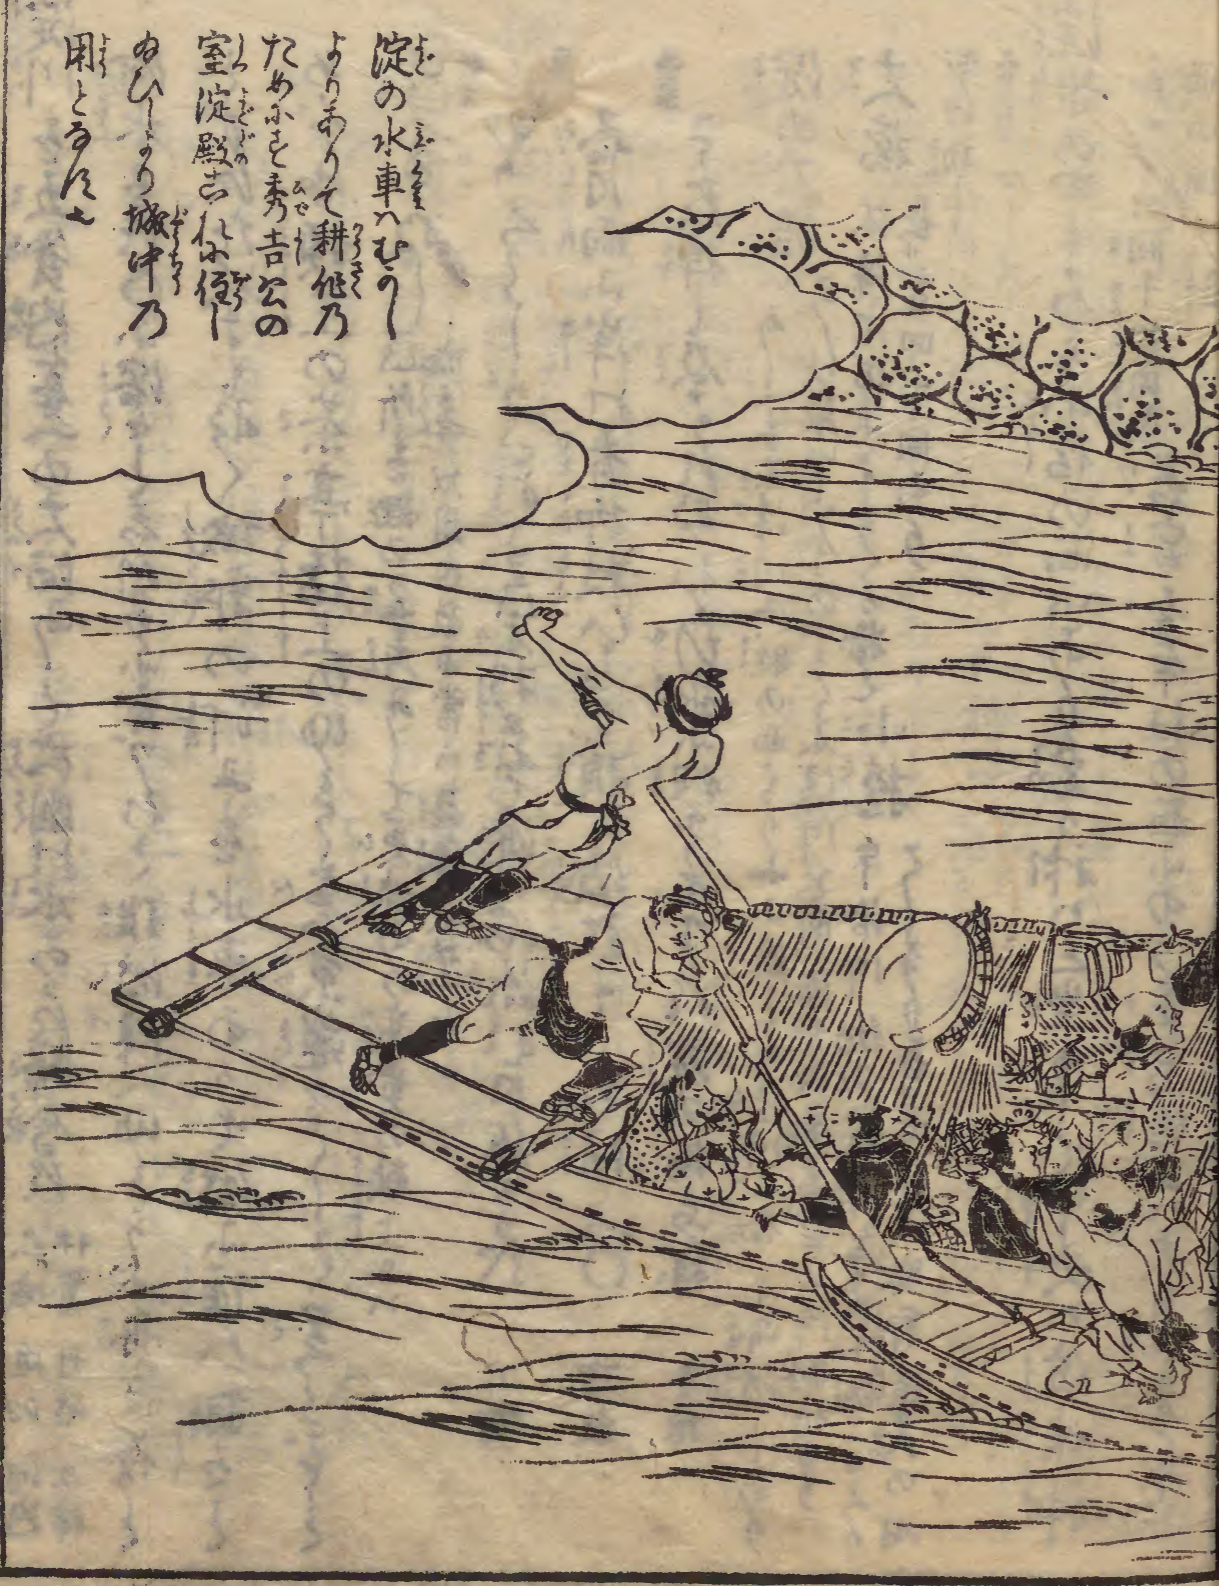 淀の水車ハむかし
よりありて耕作乃
ために
秀吉公の
室淀殿これに住し
給ひしより城中乃
用となす也